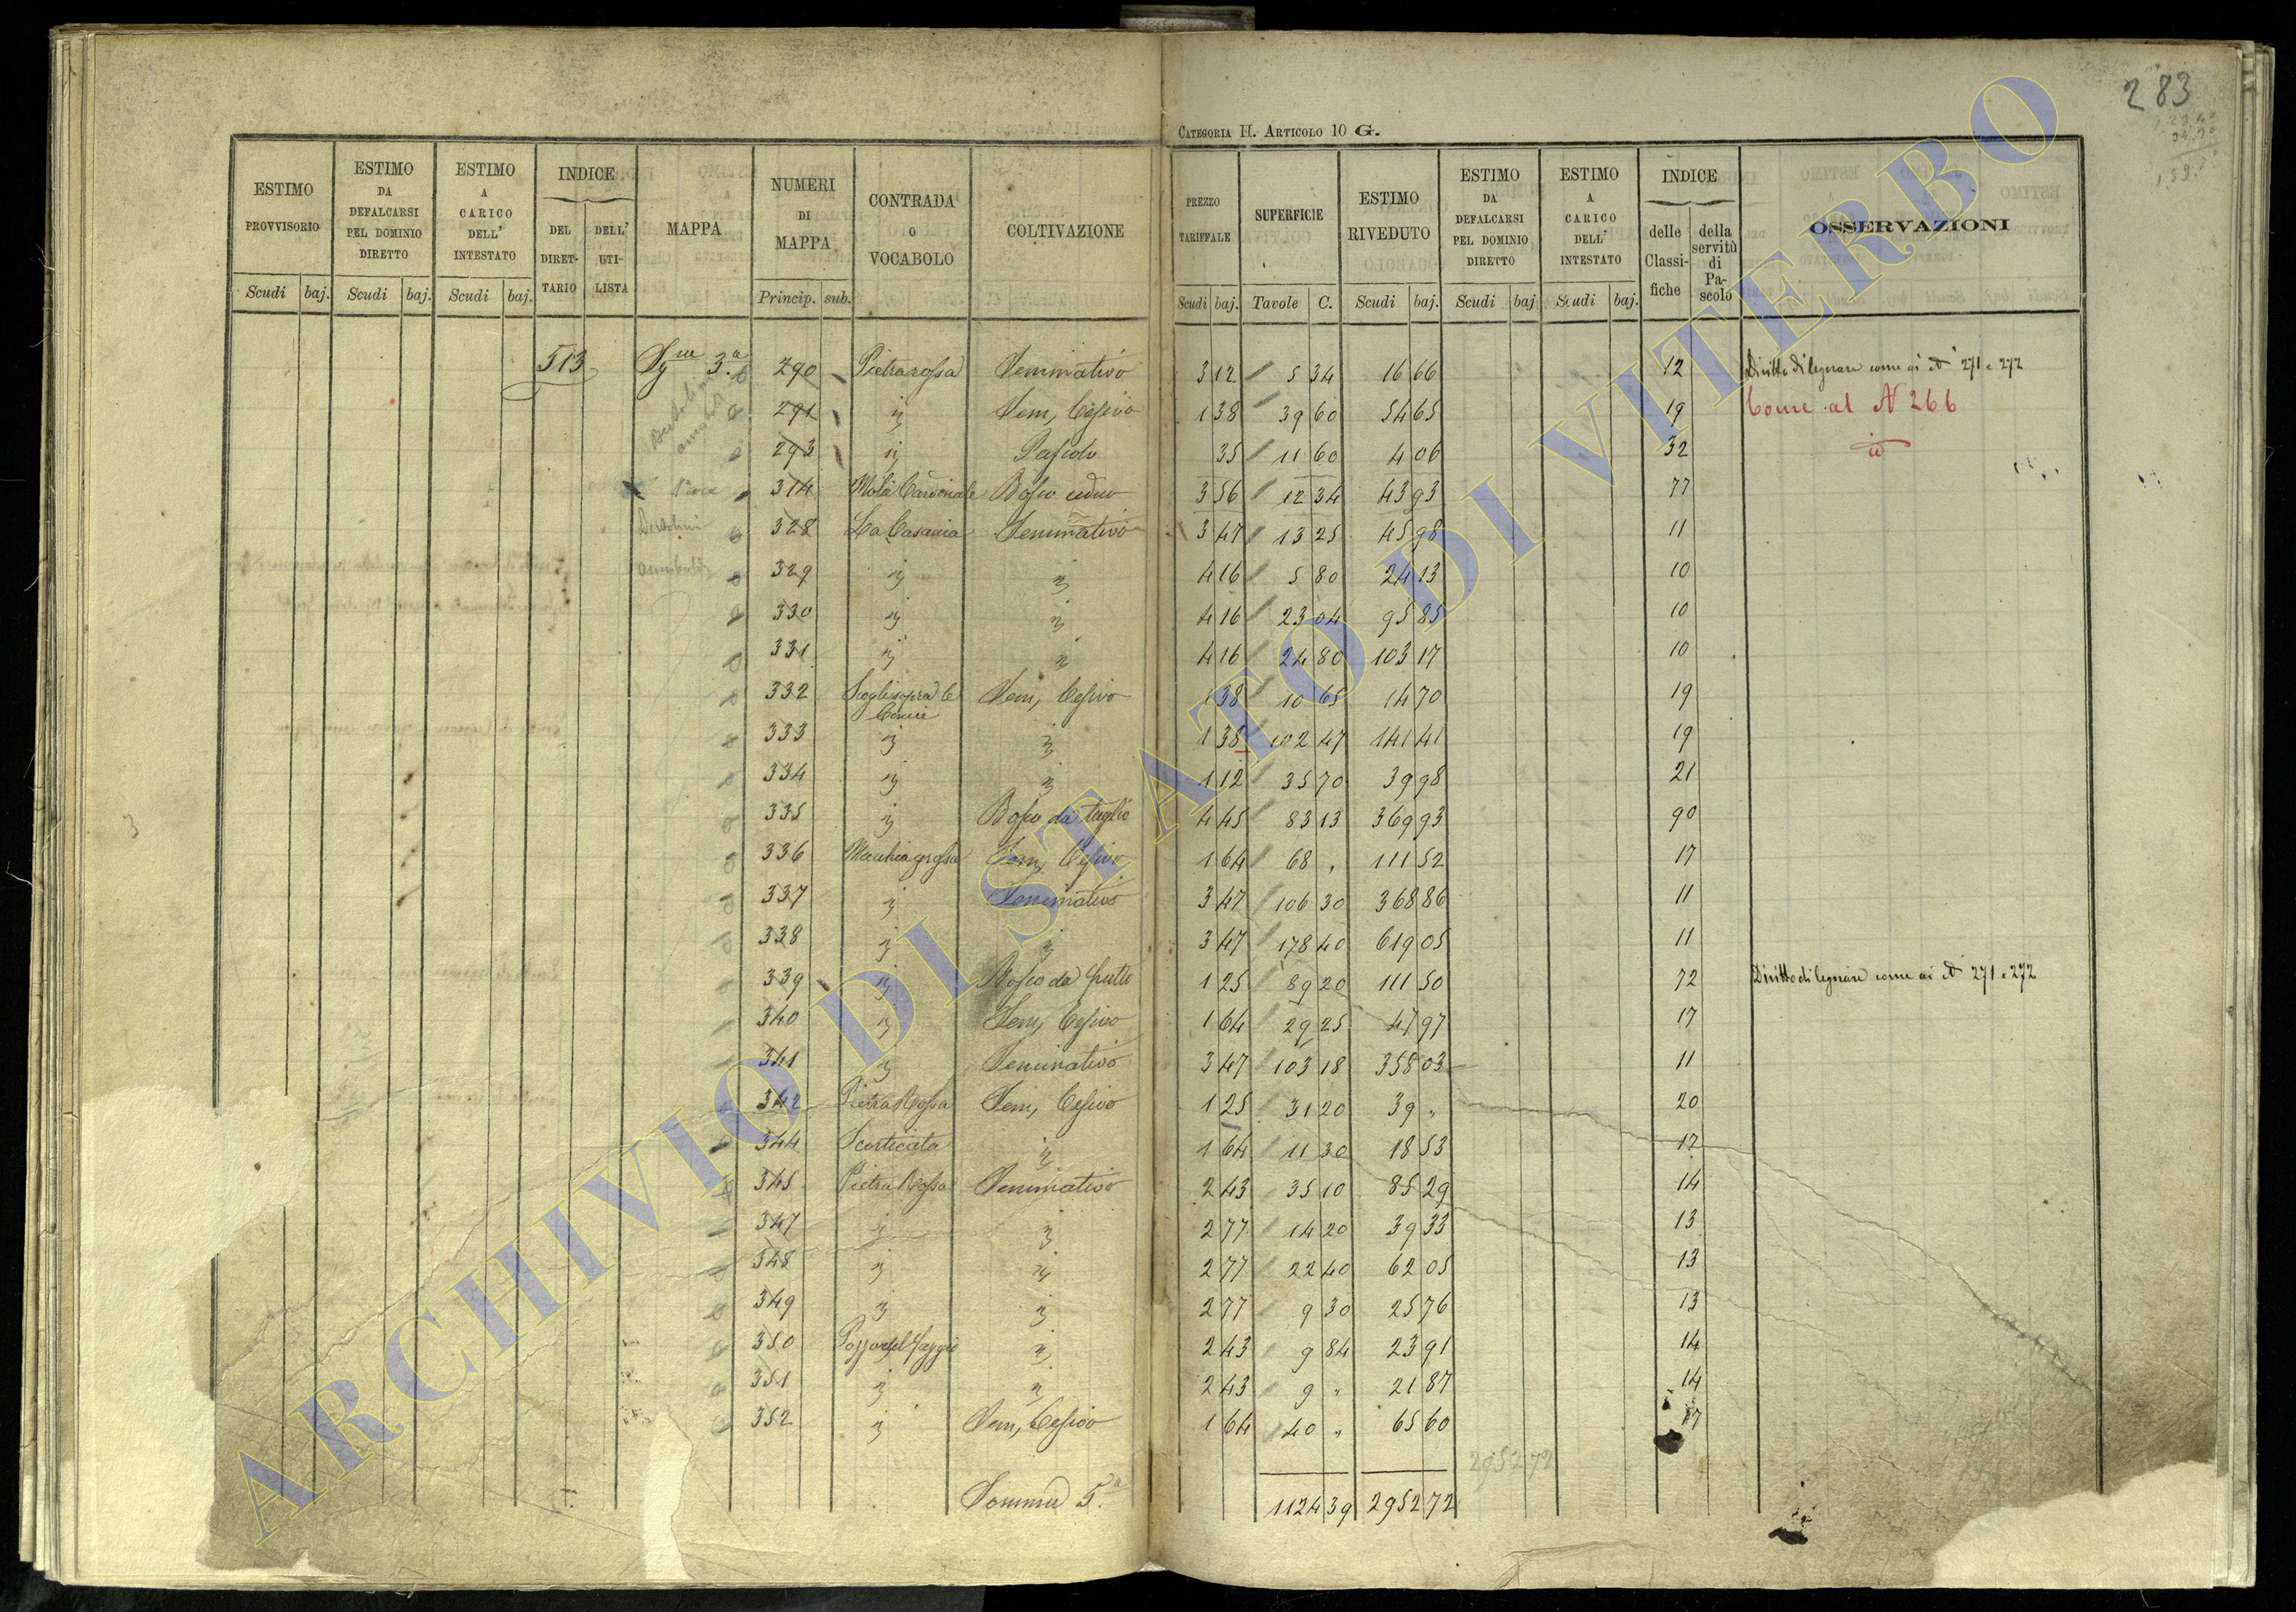 283
CATEGORIA H. ARTICOLO 10 G.
ESTIMO PROVVISORIO Scudi baj.
ESTIMO DA DEFALCARSI PEL DOMINIO DIRETTO Scudi baj.
ESTIMO A CARICO DELL' INTESTATO Scudi baj.
INDICE DEL DIRETTARIO DELL' UTILISTA
MAPPA
NUMERI DI MAPPA Princip. sub.
CONTRADA O VOCABOLO
COLTIVAZIONE
PREZZO TARIFFALE Scudi baj.
SUPERFICIE Tavole C.
ESTIMO RIVEDUTO Scudi baj.
ESTIMO DA DEFALCARSI PEL DOMINIO DIRETTO Scudi baj
ESTIMO A CARICO DELL' INTESTATO Scudi baj.
INDICE delle Classifiche della servitù di Pascolo
OSSERVAZIONI
513 3.a 290 Pietrarossa Seminativo 3 12 5 34 16 66 12 Diritto di legnare come ai N 271 e 272
291 " Sem, Cesivo 1 38 39 60 54 65 19 Come al N 266
293 " Pascolo 35 11 60 4 06 32 id
314 Mola Cardinale Bosco ceduo 3 56 12 34 43 93 77
328 La Casaccia Seminativo 3 47 13 25 45 98 11
329 " " 4 16 5 80 24 13 10
330 " " 4 16 23 04 95 85 10
331 " " 4 16 24 80 103 17 10
332 Scoglisopra le Sem, Cesivo 1 38 10 65 14 70 19
333 " " 1 38 102 47 141 41 19
334 " " 1 12 35 70 39 98 21
335 " Bosco da taglio 4 45 83 13 369 93 90
336 Macchia grossa Sem, Cesivo 1 64 68 " 111 52 17
337 " Seminativo 3 47 106 30 368 86 11
338 " " 3 47 178 40 619 05 11
339 " Bosco da frutto 1 25 89 20 111 50 72 Diritto di legnare come ai N 271 e 272
340 " Sem, Cesivo 1 64 29 25 47 97 17
341 " Seminativo 3 47 103 18 358 03 11
342 Pietra Rossa Sem, Cesivo 1 25 31 20 39 " 20
344 Scorticata " 1 64 11 30 18 53 17
345 Pietra Rossa Seminativo 2 43 35 10 85 29 14
347 " " 2 77 14 20 39 33 13
348 " " 2 77 22 40 62 05 13
349 " " 2 77 9 30 25 76 13
350 Pozzo del faggio " 2 43 9 84 23 91 14
351 " " 2 43 9 " 21 87 14
352 " Sem, Cesivo 1 64 40 " 65 60 17
2952 72
Somma 5.a 1124 39 2952 72
ARCHIVIO DI STATO DI VITERBO